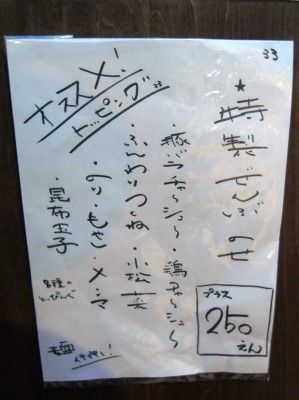 オススメ!
トッピング
★特製ぜんぶのせ
・豚バラチャーシュー・鶏チャーシュー
・ふんわりつくね・小松菜
・のり・もやし・メンマ
・昆布玉子
8種の
とっぴんぐ
プラス
250
えん